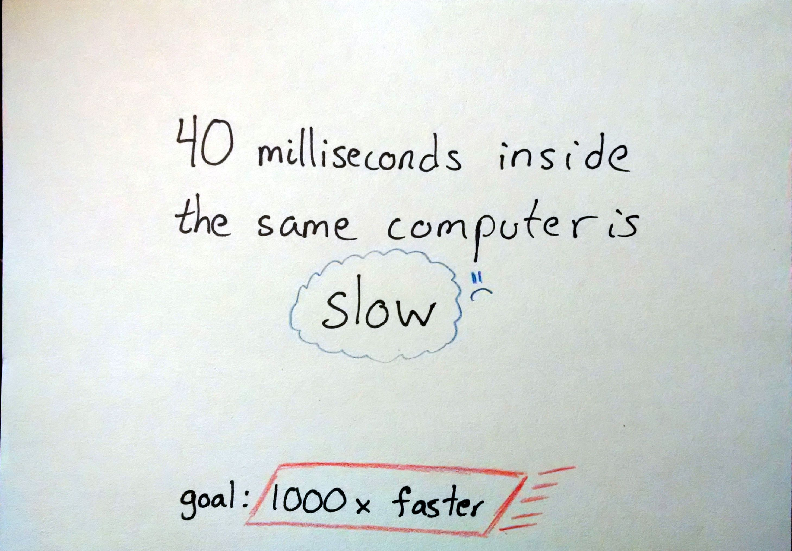 40 milliseconds inside
the same computer is
slow
goal: 1000x faster